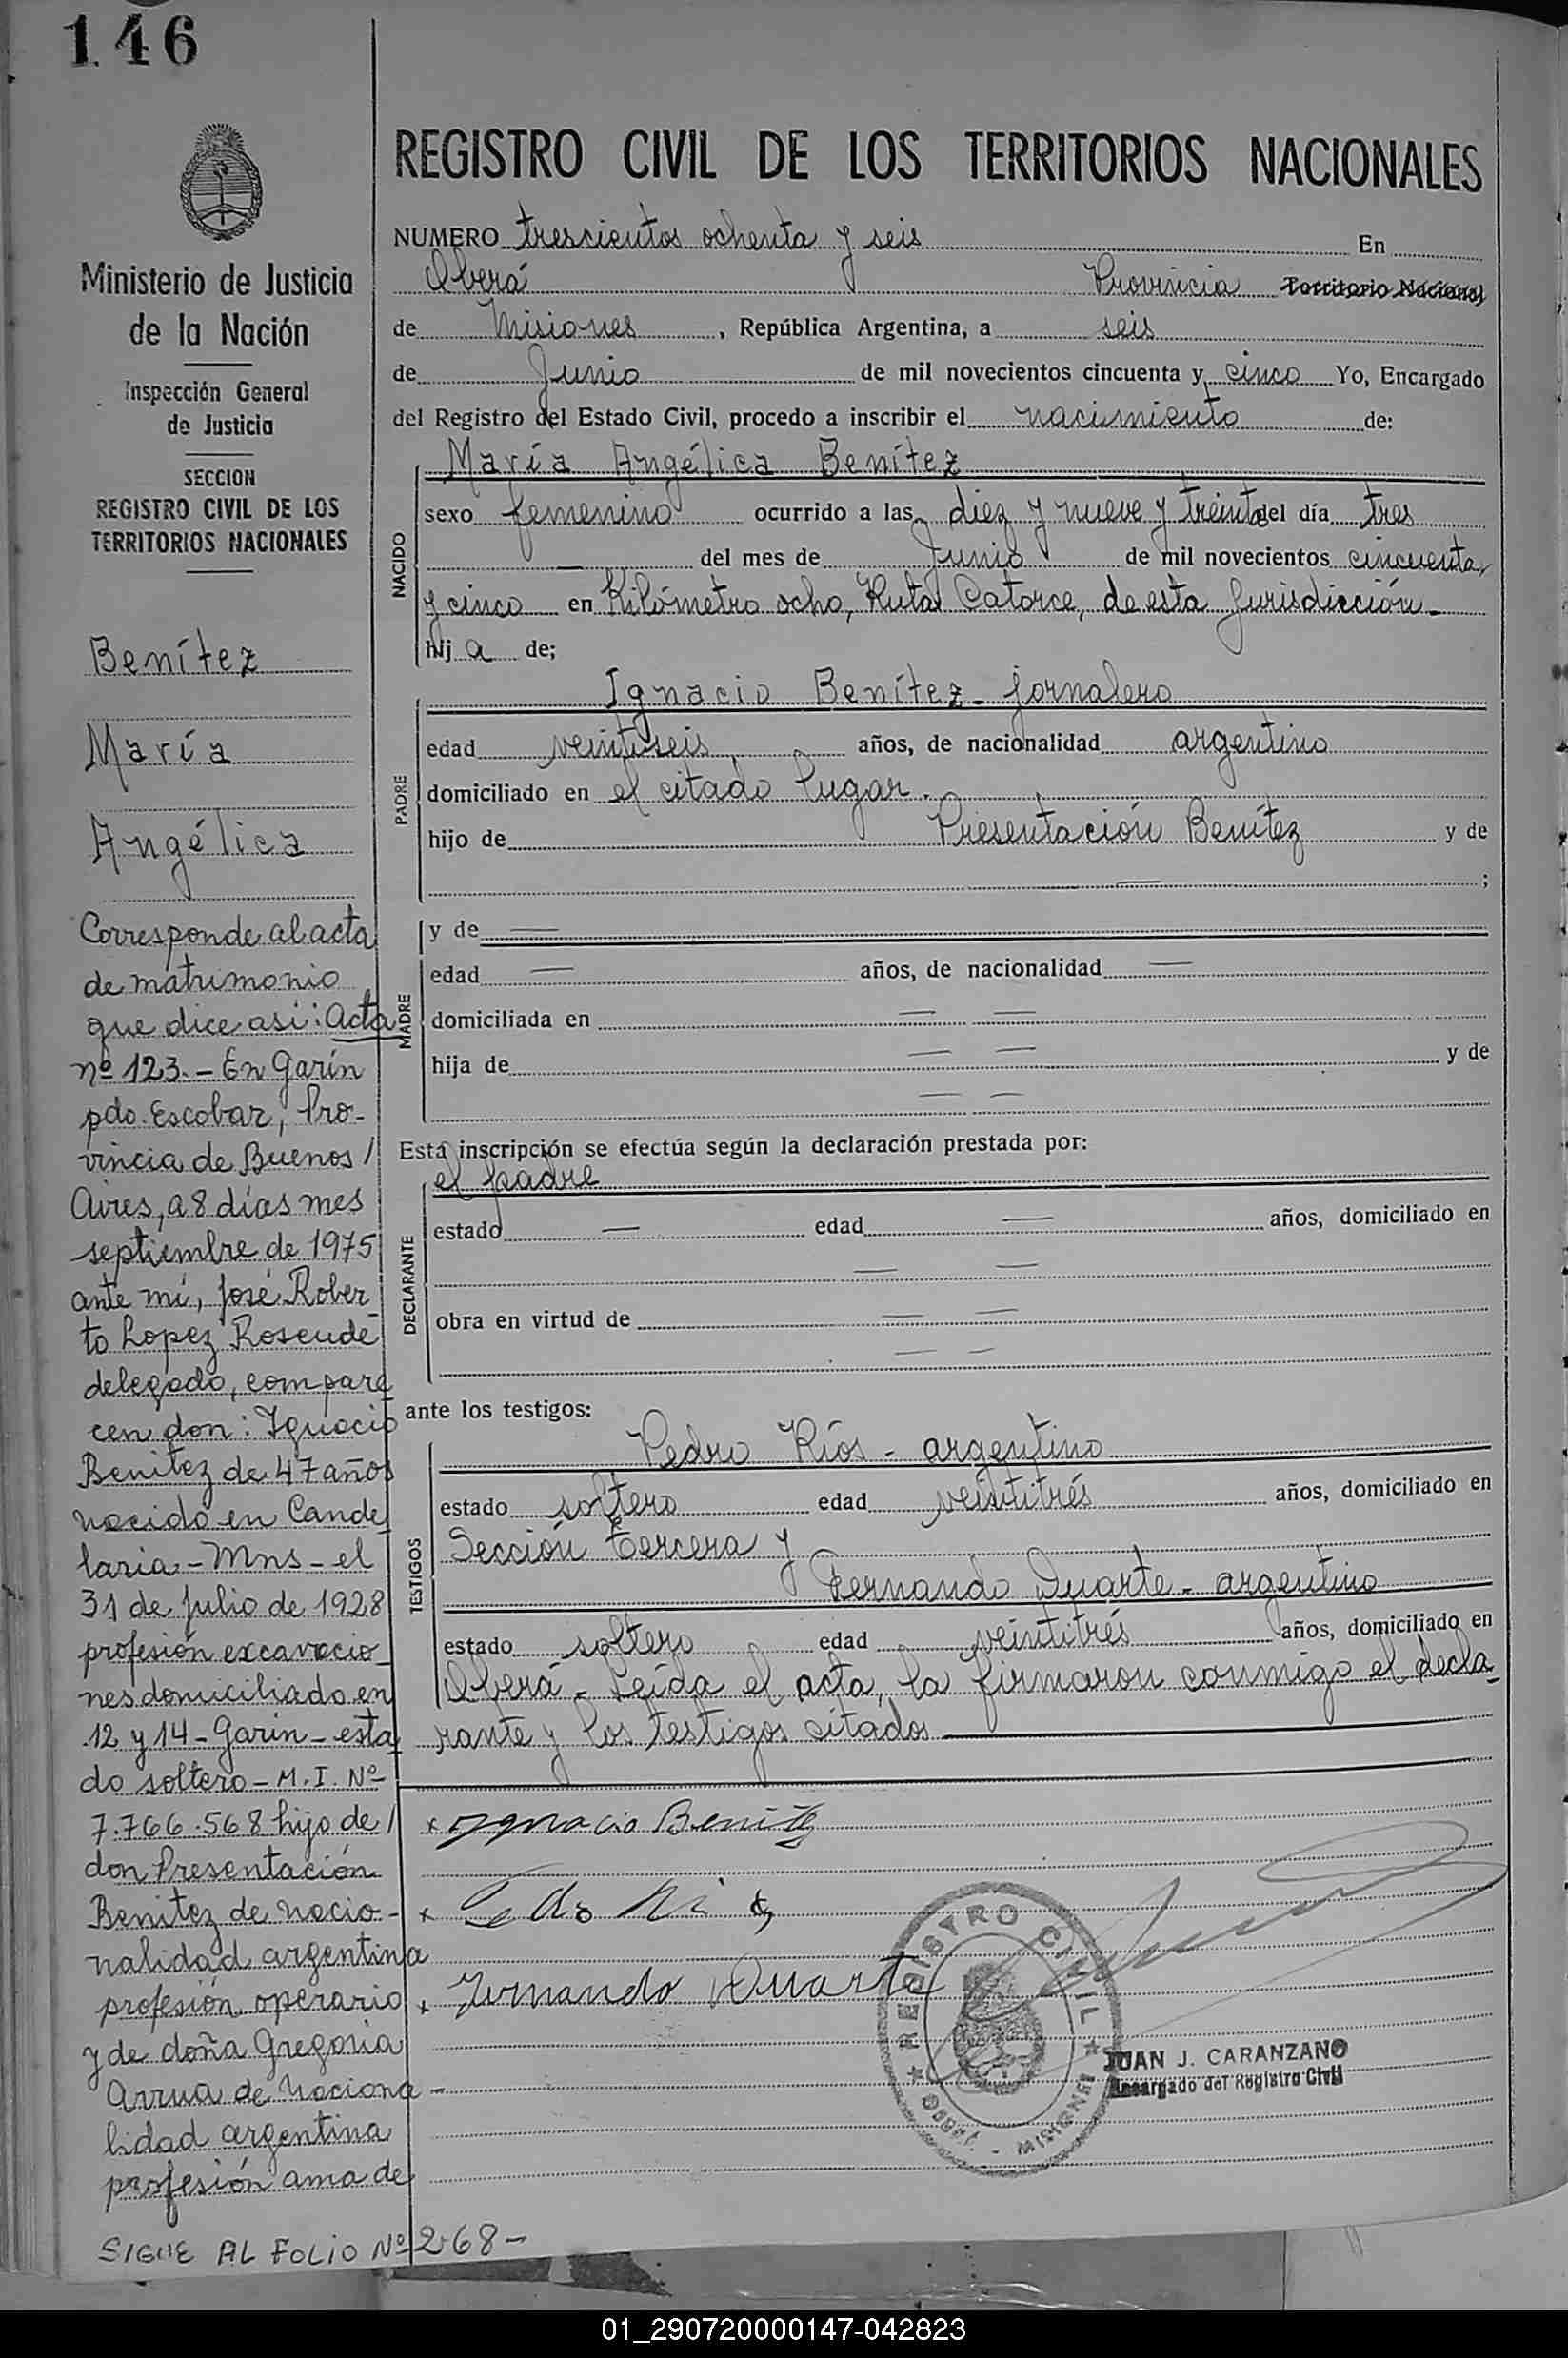 146
Ministerio de Justicia
de la Nación
Inspección General
de Justicia
SECCION
REGISTRO CIVIL DE LOS
TERRITORIOS NACIONALES
Benítez
María
Angélica
Corresponde al acta
de matrimonio
que dice asi: Acta
nº 123.- En Garín
pdo. Escobar, Pro-
vincia de Buenos /
Aires, a 8 días mes
septiembre de 1975
ante mí, José Rober-
to Lopez Rosende
delegado, compare
cen don: Ignacio
Benitez de 47 años
nacido en Cande
laria - Mns - el
31 de julio de 1928
profesión excavacio_
nes domiciliado en
12 y 14 - Garin - esta
do soltero - M. I. Nº
7.766.568 hijo de /
don Presentación
Benitez de nacio-
nalidad argentina
profesión operario
y de doña Gregoria
Arrua de naciona -
lidad argentina
profesión ama de
SIGUE AL FOLIO Nº 268-
REGISTRO CIVIL DE LOS TERRITORIOS NACIONALES
NUMERO trescientos ochenta y seis En
Oberá Provincia Territorio Nacional
de Misiones, República Argentina, a seis
de Junio de mil novecientos cincuenta y cinco Yo, Encargado
del Registro del Estado Civil, procedo a inscribir el nacimiento de:
NACIDO
María Angélica Benítez
sexo femenino ocurrido a las diez y nueve y treinta del día tres
— del mes de Junio de mil novecientos cincuenta
y cinco en Kilómetro ocho, Ruta Catorce, de esta Jurisdicción_
hij a de;
PADRE
Ignacio Benítez - jornalero
edad veintiseis, años, de nacionalidad argentino
domiciliado en el citado lugar.
hijo de Presentación Benítez y de
— ;
MADRE
y de —
edad — años, de nacionalidad —
domiciliada en — —
hija de — — y de
— —
Esta inscripción se efectúa según la declaración prestada por:
DECLARANTE
el padre
estado — edad — años, domiciliado en
— —
obra en virtud de — —
— —
ante los testigos:
TESTIGOS
Pedro Ríos - argentino
estado soltero edad veintitrés años, domiciliado en
Sección tercera y
Fernando Duarte - argentino
estado soltero edad veintitrés años, domiciliado en
Oberá - Leída el acta, la firmaron conmigo el decla-
rante y los testigos citados
x Ygnacio Benitez
x
x Fernando Duarte
REGISTRO CIVIL
OBERA - MISIONES
JUAN J. CARANZANO
Encargado del Registro Civil
01_290720000147-042823